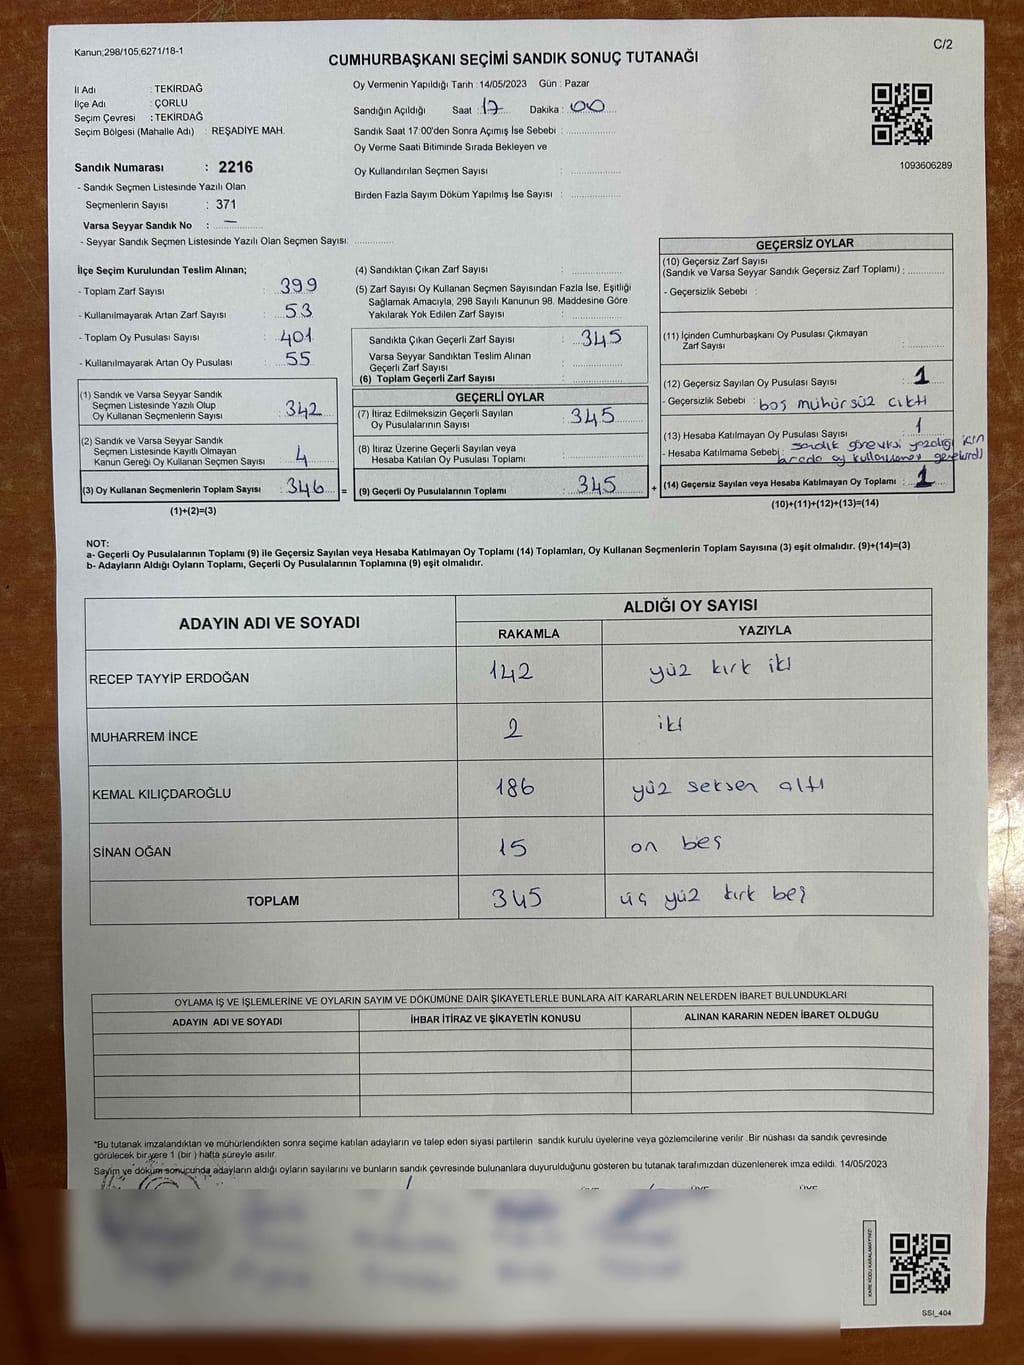 Kanun;298/105;6271/18-1
C/2
CUMHURBAŞKANI SEÇİMİ SANDIK SONUÇ TUTANAĞI
İl Adı : TEKİRDAĞ
İlçe Adı : ÇORLU
Seçim Çevresi : TEKİRDAĞ
Seçim Bölgesi (Mahalle Adı) : REŞADİYE MAH.
Oy Vermenin Yapıldığı Tarih : 14/05/2023 Gün : Pazar
Sandığın Açıldığı Saat : 17 Dakika : 00
Sandık Saat 17:00'den Sonra Açımış İse Sebebi :
Oy Verme Saati Bitiminde Sırada Bekleyen ve
Oy Kullandırılan Seçmen Sayısı :
Birden Fazla Sayım Döküm Yapılmış İse Sayısı :
1093606289
Sandık Numarası : 2216
- Sandık Seçmen Listesinde Yazılı Olan
Seçmenlerin Sayısı : 371
Varsa Seyyar Sandık No : —
- Seyyar Sandık Seçmen Listesinde Yazılı Olan Seçmen Sayısı:
İlçe Seçim Kurulundan Teslim Alınan;
- Toplam Zarf Sayısı : 399
- Kullanılmayarak Artan Zarf Sayısı : 53
- Toplam Oy Pusulası Sayısı : 401
- Kullanılmayarak Artan Oy Pusulası : 55
(1) Sandık ve Varsa Seyyar Sandık
Seçmen Listesinde Yazılı Olup
Oy Kullanan Seçmenlerin Sayısı : 342
(2) Sandık ve Varsa Seyyar Sandık
Seçmen Listesinde Kayıtlı Olmayan
Kanun Gereği Oy Kullanan Seçmen Sayısı : 4
(3) Oy Kullanan Seçmenlerin Toplam Sayısı : 346 =
(1)+(2)=(3)
(4) Sandıktan Çıkan Zarf Sayısı :
(5) Zarf Sayısı Oy Kullanan Seçmen Sayısından Fazla İse, Eşitliği
Sağlamak Amacıyla, 298 Sayılı Kanunun 98. Maddesine Göre
Yakılarak Yok Edilen Zarf Sayısı :
Sandıkta Çıkan Geçerli Zarf Sayısı : 345
Varsa Seyyar Sandıktan Teslim Alınan
Geçerli Zarf Sayısı :
(6) Toplam Geçerli Zarf Sayısı :
GEÇERLİ OYLAR
(7) İtiraz Edilmeksizin Geçerli Sayılan
Oy Pusulalarının Sayısı : 345
(8) İtiraz Üzerine Geçerli Sayılan veya
Hesaba Katılan Oy Pusulası Toplamı :
(9) Geçerli Oy Pusulalarının Toplamı : 345 +
GEÇERSİZ OYLAR
(10) Geçersiz Zarf Sayısı
(Sandık ve Varsa Seyyar Sandık Geçersiz Zarf Toplamı) :
- Geçersizlik Sebebi :
(11) İçinden Cumhurbaşkanı Oy Pusulası Çıkmayan
Zarf Sayısı :
(12) Geçersiz Sayılan Oy Pusulası Sayısı : 1
- Geçersizlik Sebebi : boş mühürsüz çıktı
(13) Hesaba Katılmayan Oy Pusulası Sayısı : 1
- Hesaba Katılmama Sebebi : sandık görevlisi yazdığı için
burada oy kullanması gerekirdi
(14) Geçersiz Sayılan veya Hesaba Katılmayan Oy Toplamı : 1
(10)+(11)+(12)+(13)=(14)
NOT:
a- Geçerli Oy Pusulalarının Toplamı (9) ile Geçersiz Sayılan veya Hesaba Katılmayan Oy Toplamı (14) Toplamları, Oy Kullanan Seçmenlerin Toplam Sayısına (3) eşit olmalıdır. (9)+(14)=(3)
b- Adayların Aldığı Oyların Toplamı, Geçerli Oy Pusulalarının Toplamına (9) eşit olmalıdır.
ADAYIN ADI VE SOYADI
ALDIĞI OY SAYISI
RAKAMLA YAZIYLA
RECEP TAYYİP ERDOĞAN 142 yüz kırk iki
MUHARREM İNCE 2 iki
KEMAL KILIÇDAROĞLU 186 yüz seksen altı
SİNAN OĞAN 15 on beş
TOPLAM 345 üç yüz kırk beş
OYLAMA İŞ VE İŞLEMLERİNE VE OYLARIN SAYIM VE DÖKÜMÜNE DAİR ŞİKAYETLERLE BUNLARA AİT KARARLARIN NELERDEN İBARET BULUNDUKLARI
ADAYIN ADI VE SOYADI İHBAR İTİRAZ VE ŞİKAYETİN KONUSU ALINAN KARARIN NEDEN İBARET OLDUĞU
*Bu tutanak imzalandıktan ve mühürlendikten sonra seçime katılan adayların ve talep eden siyasi partilerin sandık kurulu üyelerine veya gözlemcilerine verilir .Bir nüshası da sandık çevresinde
görülecek bir yere 1 (bir ) hafta süreyle asılır.
Sayım ve döküm sonucunda adayların aldığı oyların sayılarını ve bunların sandık çevresinde bulunanlara duyurulduğunu gösteren bu tutanak tarafımızdan düzenlenerek imza edildi. 14/05/2023
KARE KODU KARALAMAYINIZ!
SSI_404